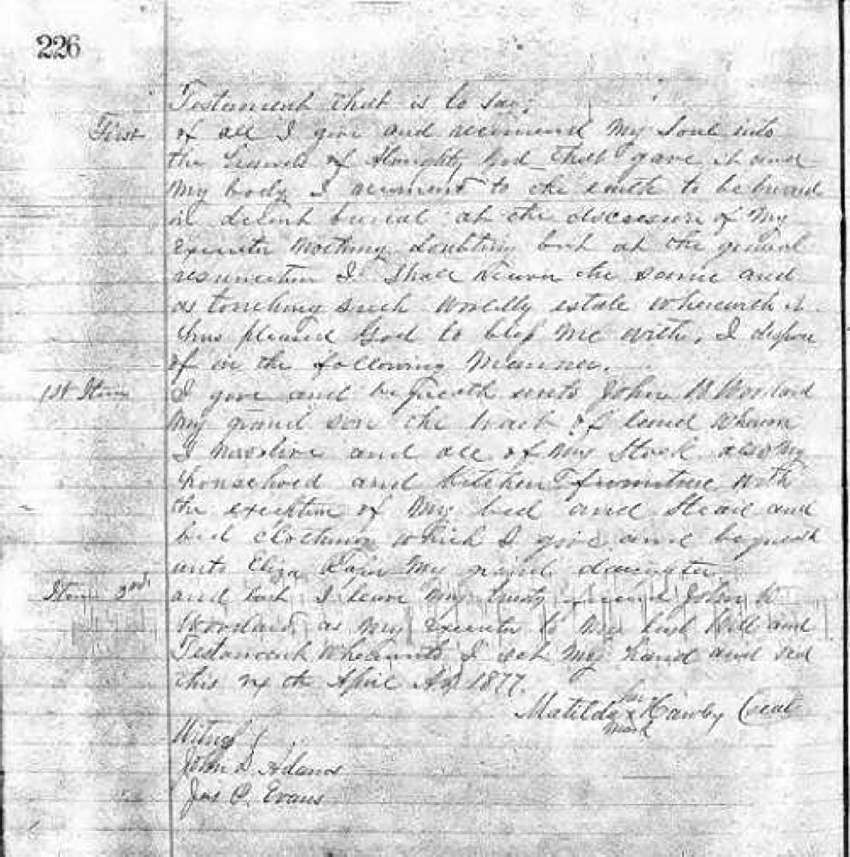 226
Testament that is to say;
First of all I give and recumend my Soul into
the hands of Almighty God that gave it and
My body I recument to the earth to be buried
in decent burial at the discression of My
Executor Nothing doubting but at the general
resurrection I Shall receive the same and
as touching such Worldly estate wherewith it
has pleased God to bless me with, I dispose
of in the following Manner.
1st Item I give and bequeath unto John W Woodard
My grand son the tract of land whereon
I now live and all of my Stock also My
household and kitchen furniture with
the exception of My bed and Stead and
bed clothing which I give and bequeath
unto Eliza My grand daughter
Item 2nd and last I leave My trusty friend John W
Woodard as My Executor to My last Will and
Testament Whereunto I set My hand and seal
this the April AD 1877.
Matilda her x mark Hawby (seal
Witness
John D. Adams
Jas C. Evans